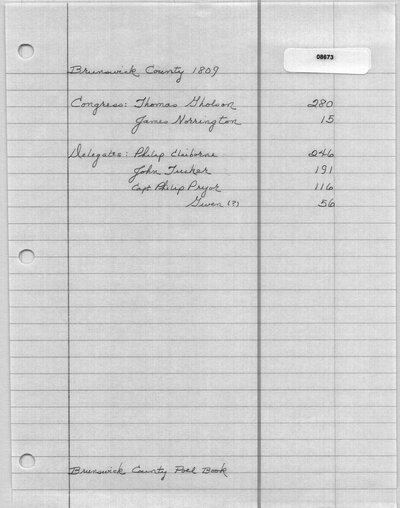 08673
Brunswick County 1809
Congress: Thomas Gholson 280
James Norrington 15
Delegates: Philip Claiborne 246
John Tucker 191
Capt Philip Pryor 116
Gween (?) 56
Brunswick County Poll Book